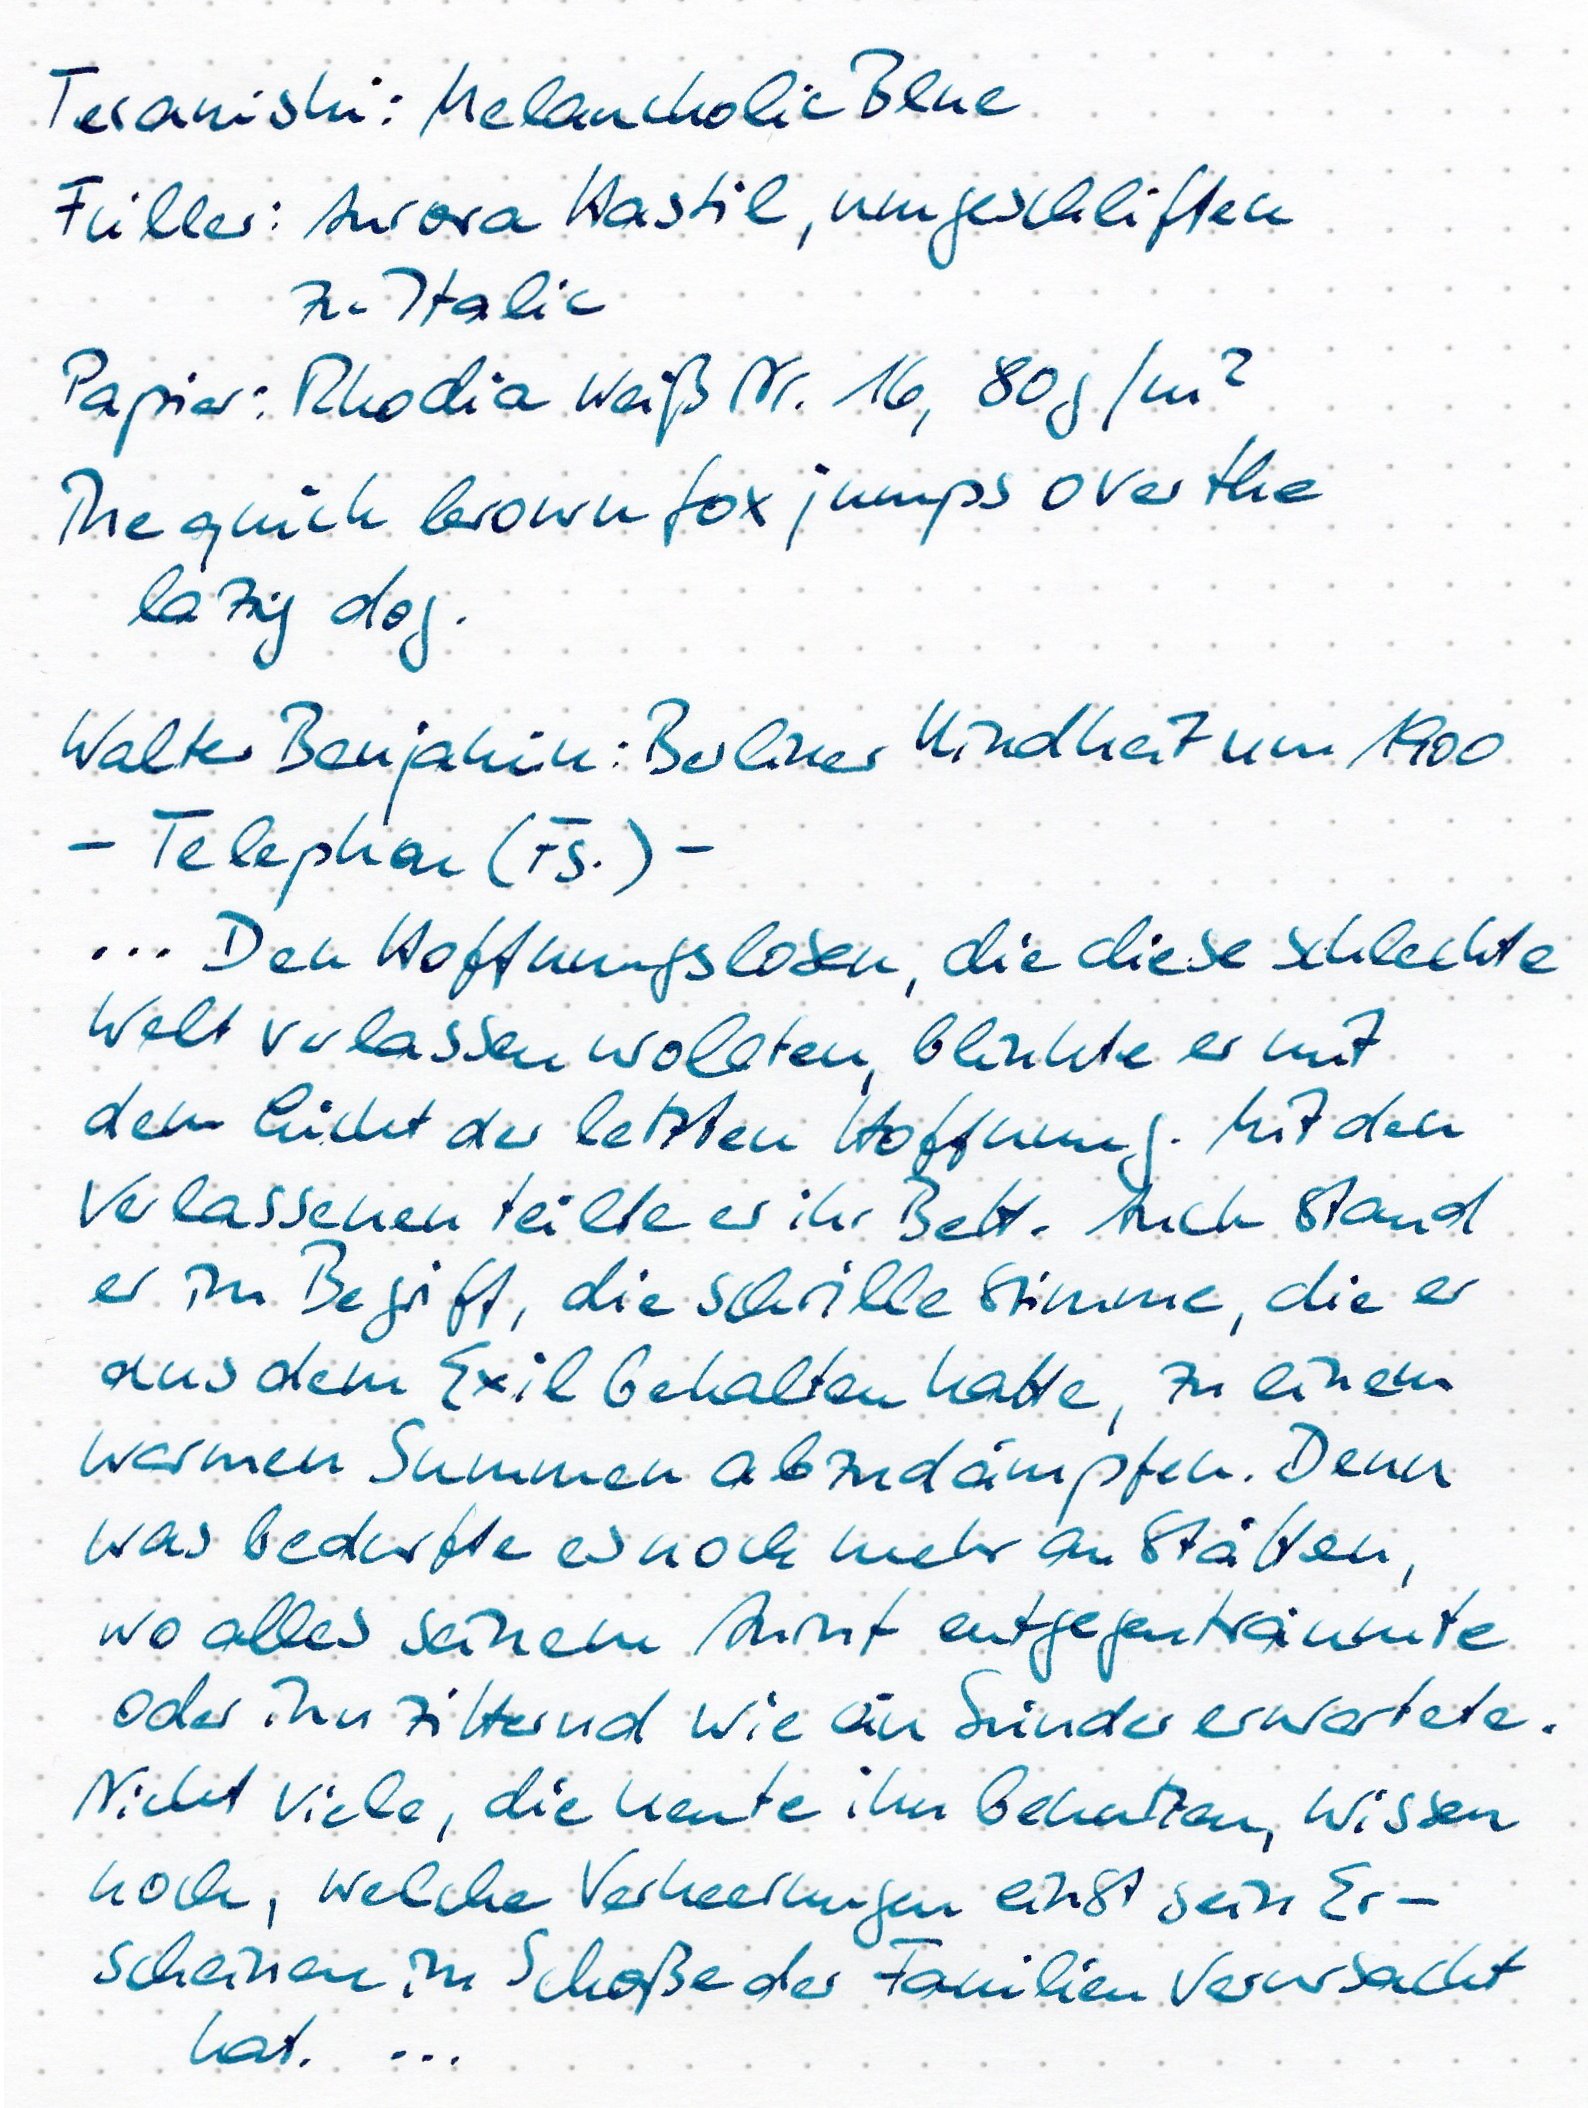 Teranishi: Melancholic Blue
Füller: Aurora Hastil, umgeschliffen
zu Italic
Papier: Rhodia weiß Nr. 16, 80g/m²
The quick brown fox jumps over the
lazy dog.
Walter Benjamin: Berliner Kindheit um 1900
– Telephon (Fs.) –
... Den Hoffnungslosen, die diese schlechte
Welt verlassen wollten, blinkte er mit
dem Licht der letzten Hoffnung. Mit den
Verlassenen teilte er ihr Bett. Auch stand
er im Begriff, die schrille Stimme, die er
aus dem Exil behalten hatte, zu einem
warmen Summen abzudämpfen. Denn
was bedurfte es noch mehr an Stätten,
wo alles seinem Anruf entgegenträumte
oder ihn zitternd wie ein Sünder erwartete.
Nicht viele, die heute ihn benutzen, wissen
noch, welche Verheerungen einst sein Er-
scheinen im Schoße der Familien verursacht
hat. ...